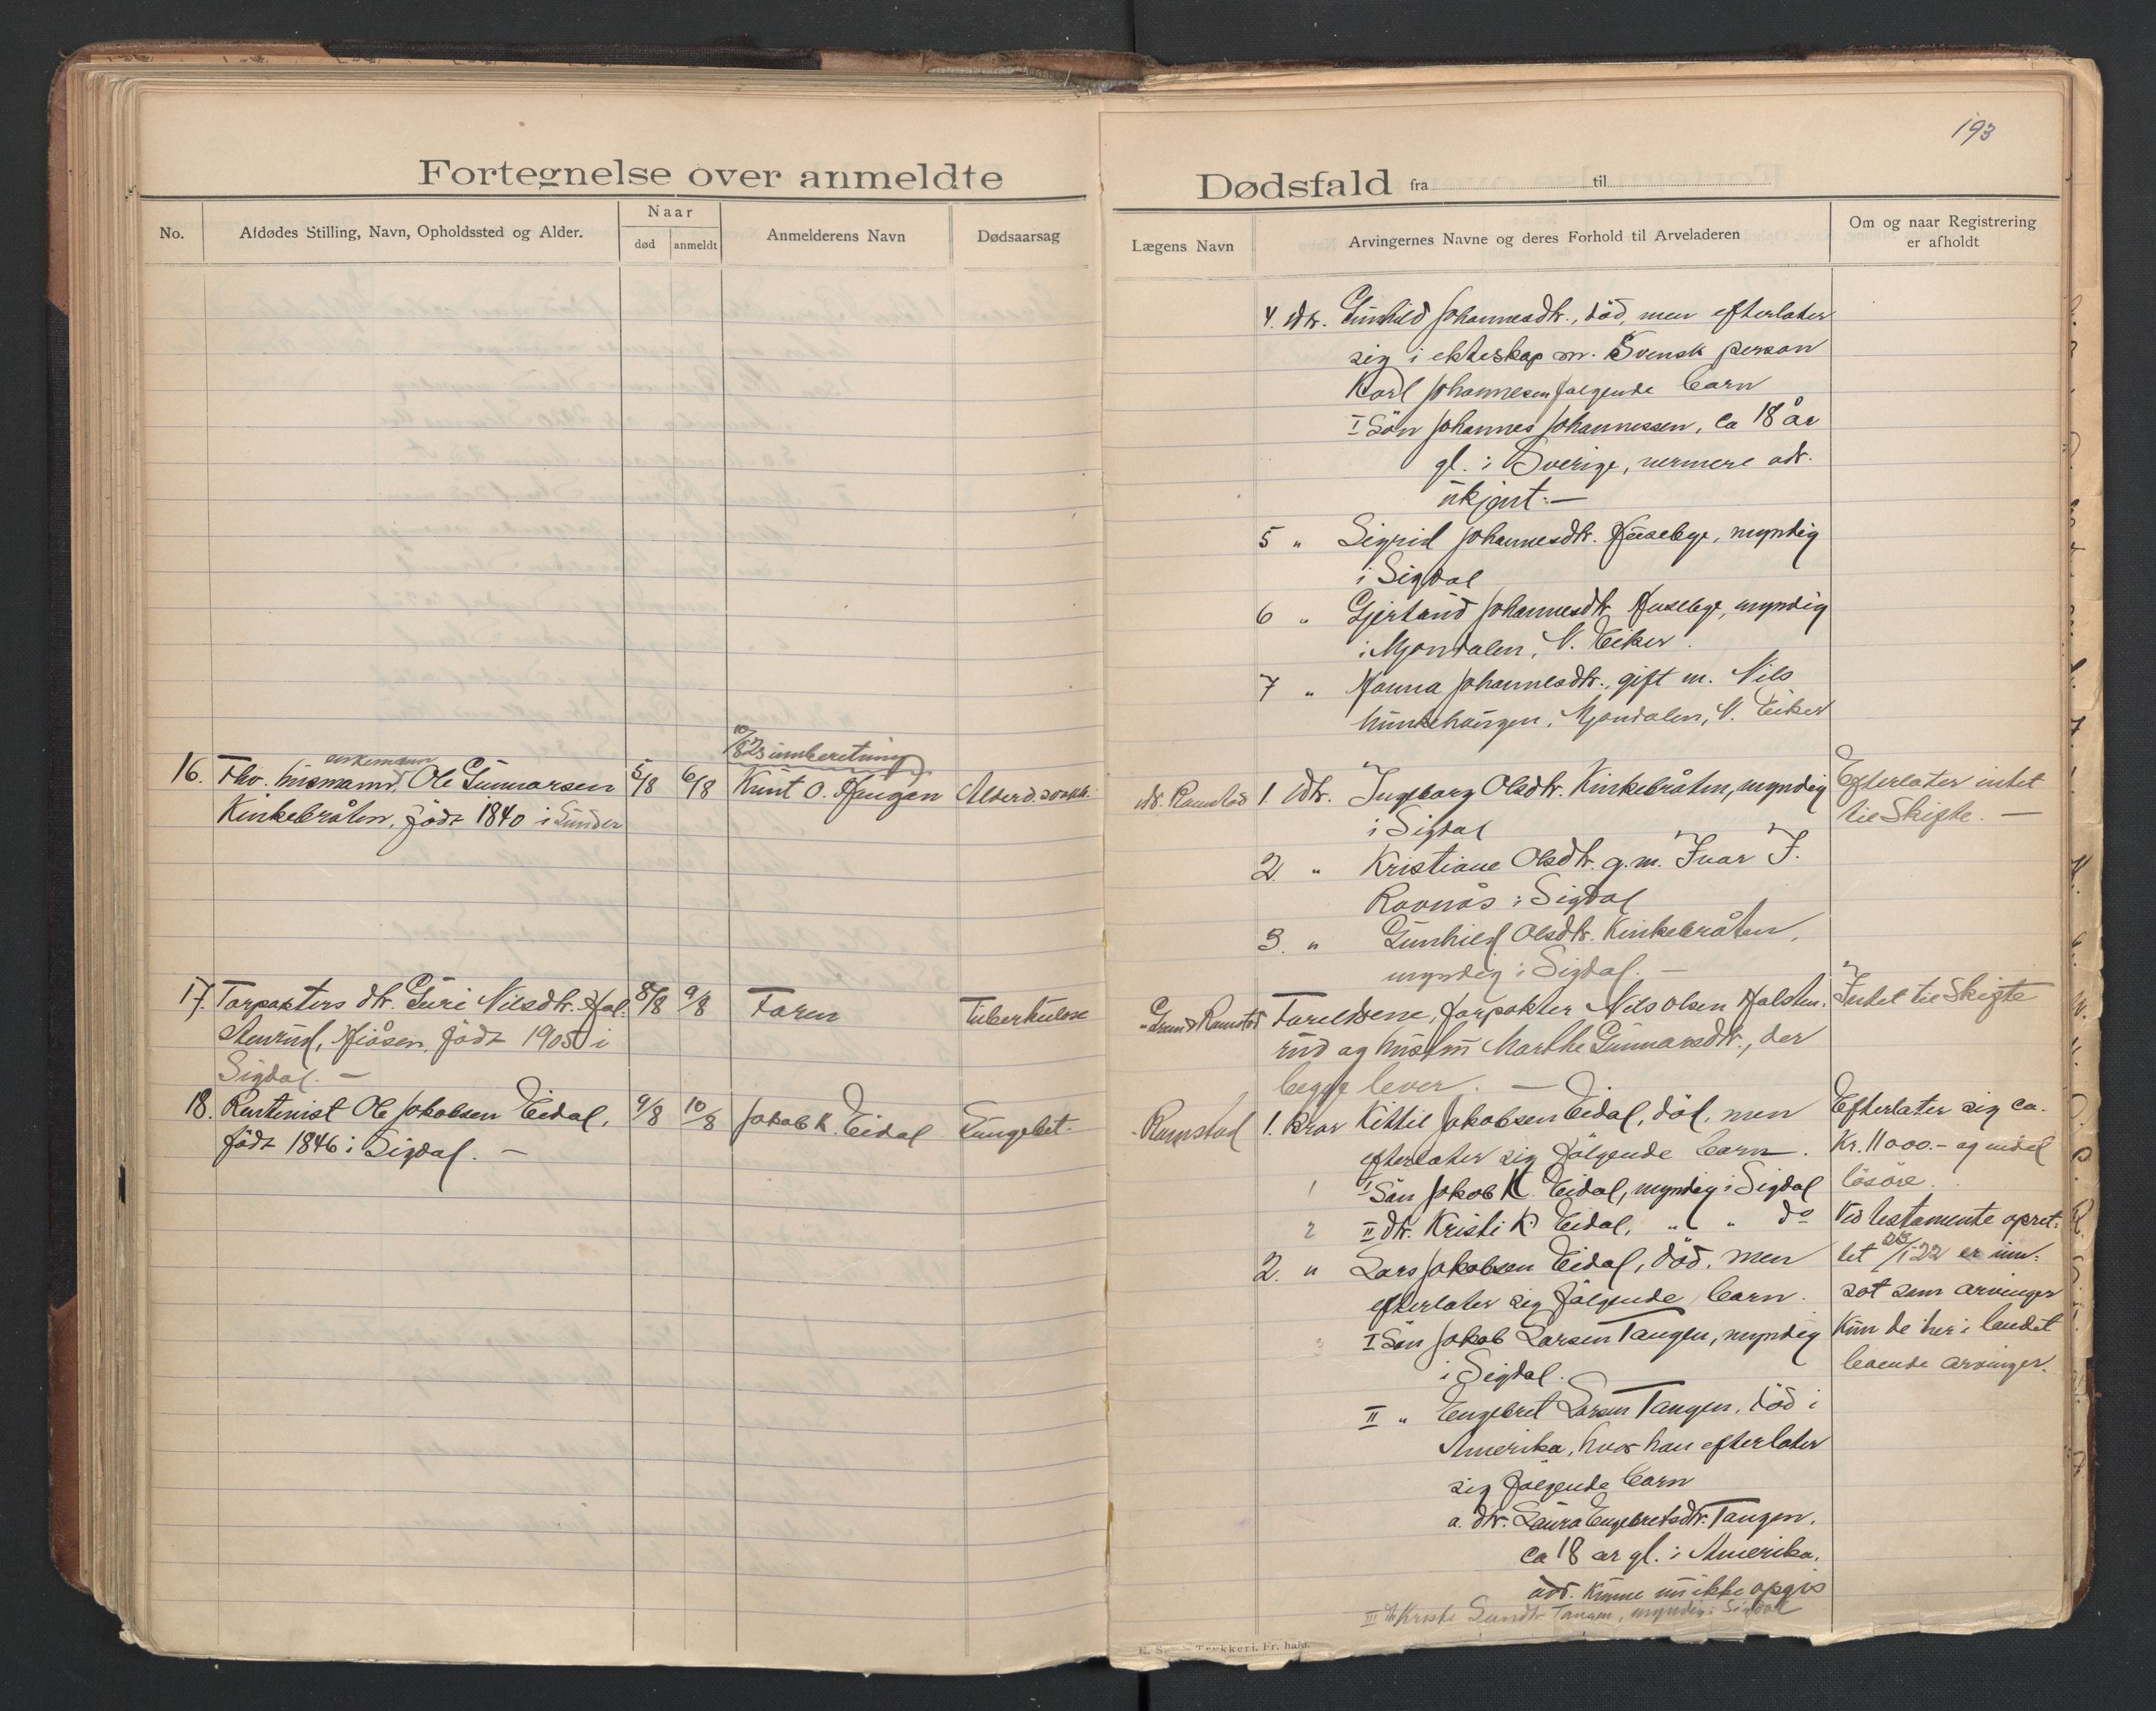 193
Fortegnelse over anmeldte
Dødsfald fra til
No.
Afdødes Stilling, Navn, Opholdssted og Alder.
Naar
død
anmeldt
Anmelderens Navn
Dødsaarsag
Lægens Navn
Arvingernes Navne og deres Forhold til Arveladeren
Om og naar Registrering
er afholdt
4. dtr. Gunhild Johannesdtr., död, men efterlater
sig i ekteskap m. Svensk person
Karl Johannesen følgende barn
I Sön Johannes Johannessen, ca 18 år
gl. i Sverige, nermere adr.
ukjent. —
5 " Sigrid Johannesdtr. Huseby, myndig
i Sigdal
6 " Gjertrud Johannesdtr. Huseby, myndig
i Mjøndalen, N. Eiker.
7 " Hanna Johannesdtr., gift m. Nils
Munkehaugen, Mjøndalen, N. Eiker
10/8 23 innberetning
enkemann
16. Fhv. husmann, Ole Gunnarsen 5/8 6/8 Knut O. Haugen Alderd.svakh.
Kinkebråten, födt 1840 i Sigdal
dr. Ramstad 1. dtr. Ingeborg Olsdtr. Kinkebråten, myndig
i Sigdal
2 " Kristiane Olsdtr. g.m. Ivar I.
Ravnås i Sigdal
3. " Gunhild Olsdtr. Kinkebråten,
myndig i Sigdal. —
Efterlater intet
til Skifte. —
17. Forpakters dtr. Guri Nilsdtr. Hal- 8/8 9/8 Faren Tuberkulose
stenrud, födt 1905 i
Sigdal. —
Ramstad Foreldrene, forpakter Nils Olsen Halsten-
rud og hustru Marthe Gunnarsdtr., der
begge lever. —
Intet til Skifte
18. Rentenist Ole Jakobsen Eidal, 9/8 10/8 Jakob K. Eidal Lungebet.
födt 1846 i Sigdal. —
Ramstad 1. Bror Kittil Jakobsen Eidal, död, men
efterlater sig följende barn.
1 I Sön Jakob K. Eidal, myndig i Sigdal
2 II dtr. Kristi K. Eidal, " " do
2. " Lars Jakobsen Eidal, död, men
efterlater sig følgende barn.
3 I Sön Jakob Larsen Tangen, myndig
i Sigdal.
II " Engebret Larsen Tangen, död i
Amerika, hvor han efterlater
sig følgende barn
a. dtr. Laura Engebretsdtr. Tangen,
ca 18 ar gl. i Amerika.
adr. kunne nu ikke opgis
III dtr Kristi Tangen, myndig i Sigdal
Efterlater sig ca.
Kr. 11000.- og endel
lösöre.
Ved testamente opret-
tet 23/1 22 er inn-
sat som arvinger
kun de her i landet
levende arvinger.
Trykkeri, Fr. hald.